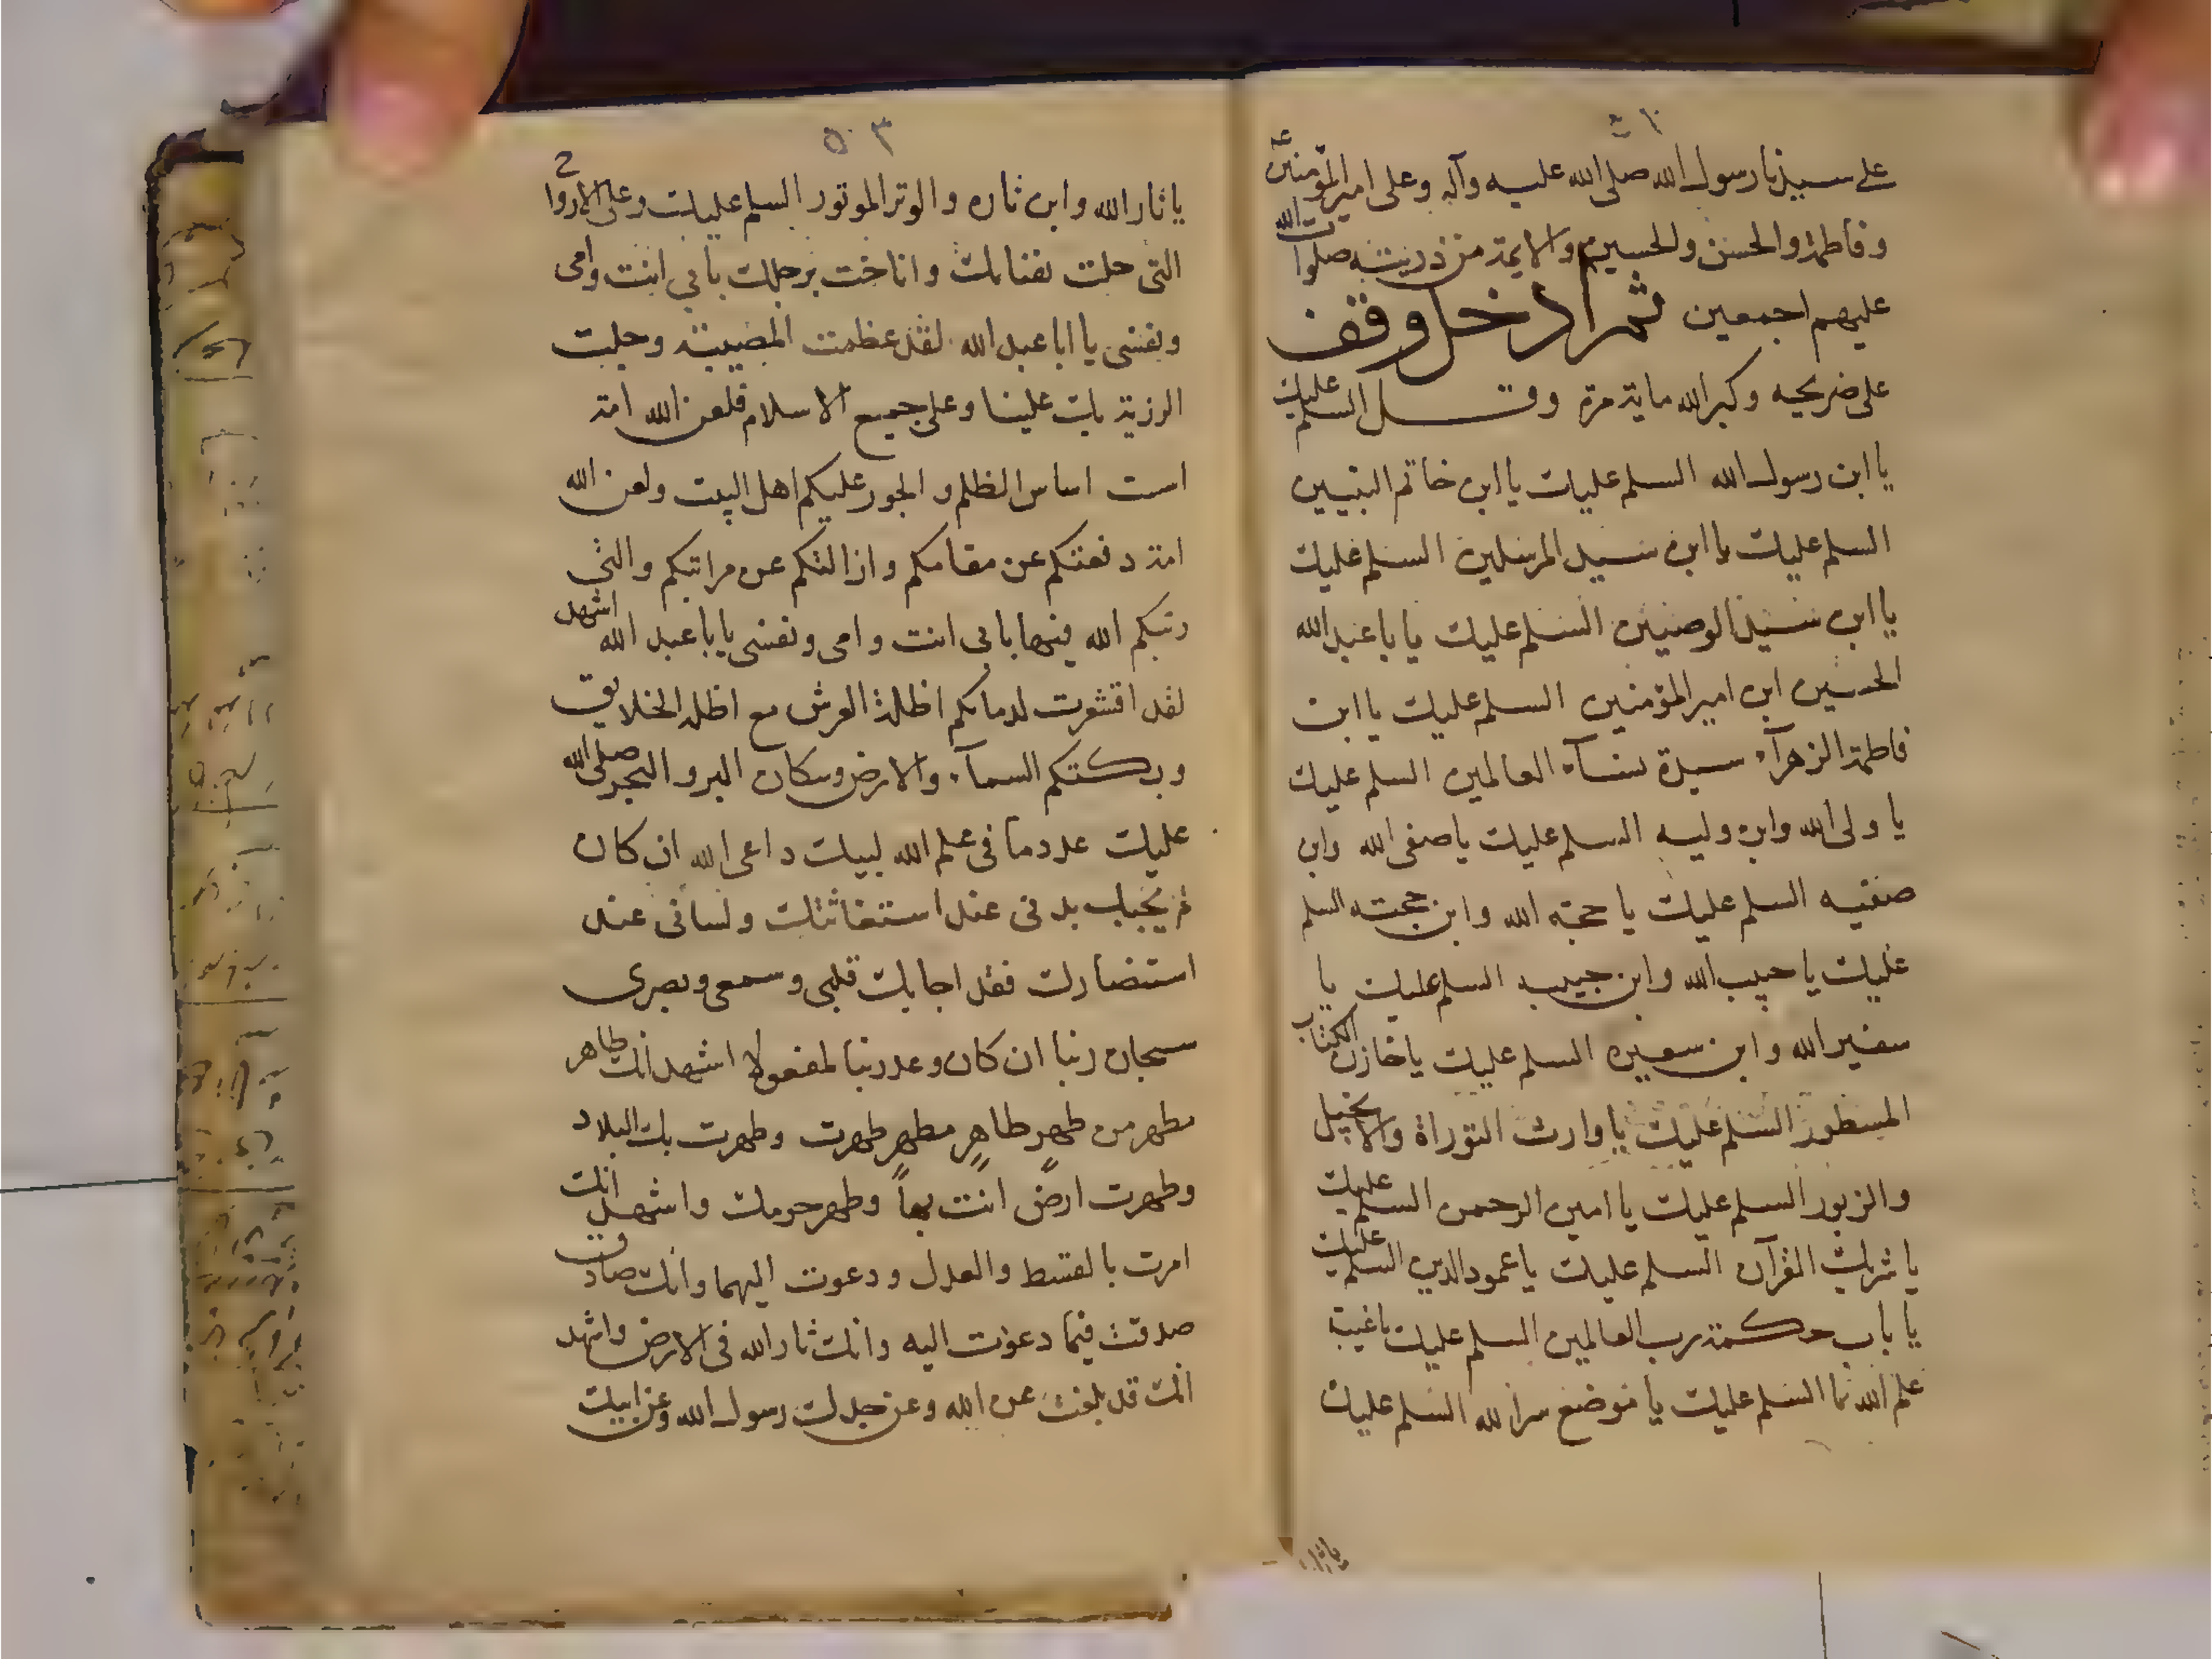 على سيدنا رسول الله صلى الله عليه وآله وعلى امير المؤمنين
وفاطمة والحسن والحسين والايمة من ذريته صلوات الله
عليهم اجمعين ثم ادخل وقف
على ضريحه وكبر الله ماية مرة وقل السلم عليك
يا ابن رسول الله السلم عليك يا ابن خاتم النبيين
السلم عليك يا ابن سيد المرسلين السلم عليك
يا ابن سيد الوصيين السلم عليك يا با عبد الله
الحسين ابن امير المؤمنين السلم عليك يا ابن
فاطمة الزهرآء سيدة نسآء العالمين السلم عليك
يا ولى الله وابن وليه السلم عليك يا صفى الله وابن
صفيه السلم عليك يا حجة الله وابن حجته السلم
عليك يا حبيب الله وابن حبيبه السلم عليك يا
سفير الله وابن سفيره السلم عليك يا خازن الكتاب
المسطور السلم عليك يا وارث التوراة والانجيل
والزبور السلم عليك يا امين الرحمن السلم عليك
يا شريك القرآن السلم عليك يا عمود الدين السلم عليك
يا باب حكمة رب العالمين السلم عليك يا عيبة
علم الله السلم عليك يا موضع سر الله السلم عليك
٥٠٣
يا ثار الله وابن ثاره والوتر الموتور السلم عليك وعلى الارواح
التى حلت بفنائك واناخت برحلك بابي انت وامى
ونفسى يا ابا عبد الله لقد عظمت المصيبة وجلت
الرزية بك علينا وعلى جميع الاسلام فلعن الله امة
است اساس الظلم والجور عليكم اهل البيت ولعن الله
امة دفعتكم عن مقامكم وازالتكم عن مراتبكم والتى
رتبكم الله فيها بابى انت وامى ونفسى يا با عبد الله اشهد
لقد اقشعرت لدمائكم اظلة العرش مع اظلة الخلايق
وبكتكم السمآء والارض وسكان البر والبحر صلى الله
عليك عدد ما فى علم الله لبيك داعى الله ان كان
لم يجبك بدنى عند استغاثتك ولسانى عند
استنصارك فقد اجابك قلبى وسمعى وبصرى
سبحان ربنا ان كان وعد ربنا لمفعولا اشهد انك طاهر
مطهر من طهرٍ طاهرٍ مطهرٍ طهرت وطهرت بك البلاد
وطهرت ارضٌ انت بها وطهر حرمك واشهد انك
امرت بالقسط والعدل ودعوت اليهما وانك صادق
صدقت فيما دعوت اليه وانك ثار الله فى الارض واشهد
انك قد بلغت عن الله وعن جدك رسول الله وعن ابيك